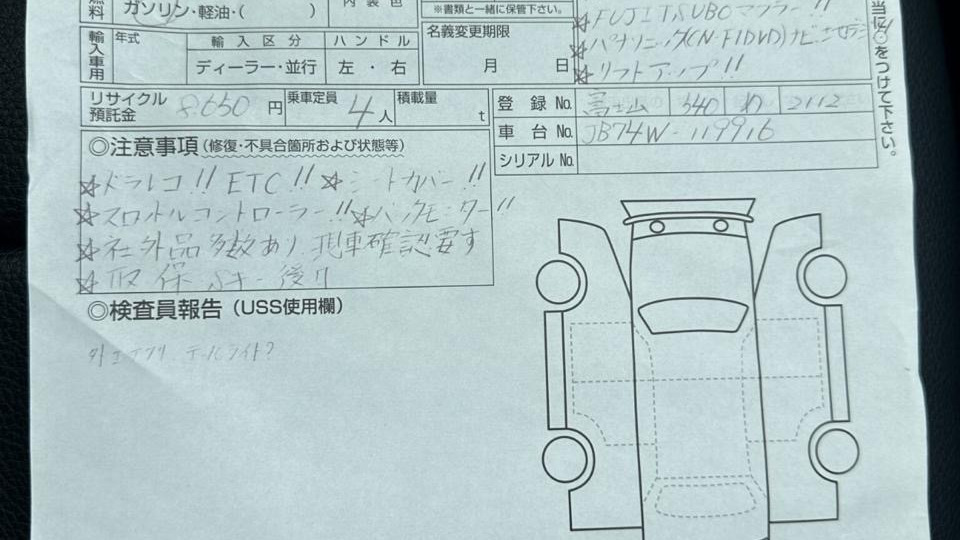 燃料
ガソリン・軽油・( )
内装色
※書類と一緒に保管下さい。
名義変更期限
月 日
☆FUJITSUBOマフラー!!
☆パナソニック(CN-F1DVD)ナビ
☆リフトアップ!!
当に○をつけて下さい。
輸入車用
年式
輸入区分
ハンドル
ディーラー・並行
左・右
リサイクル預託金
8650円
乗車定員
4人
積載量
t
登録 No.
富士山 540
2112
車台 No.
JB74W-119916
シリアル No.
◎注意事項(修復・不具合箇所および状態等)
☆ドラレコ!! ETC!! ☆シートカバー!!
☆スロットルコントローラー!! ☆バックモニター!!
☆社外品多数あり 現車確認要す
☆取 保 キー 後日
◎検査員報告(USS使用欄)
外エアクリ テールライト?